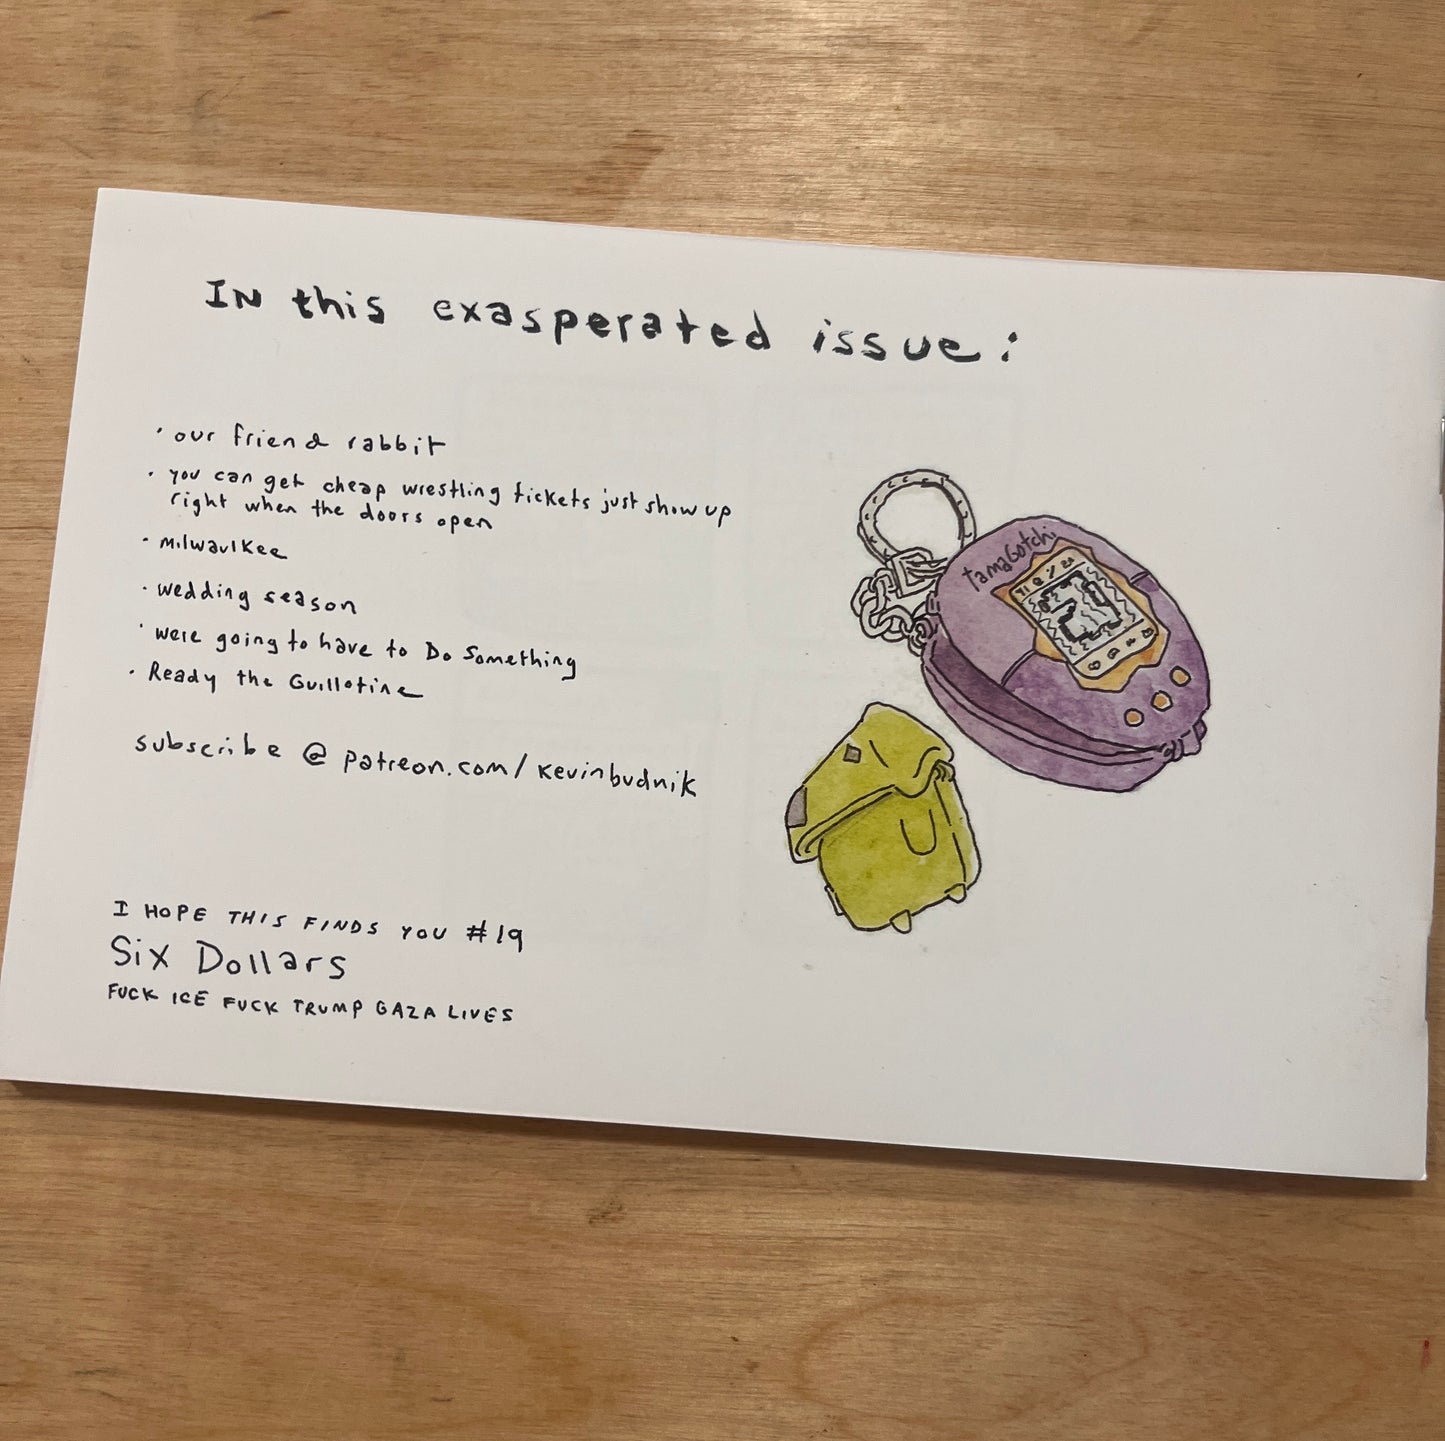 IN this exasperated issue:
· our friend rabbit
· you can get cheap wrestling tickets just show up
right when the doors open
· milwaulkee
· wedding season
· were going to have to Do Something
· Ready the Guillotine
subscribe @ patreon.com/kevinbudnik
I HOPE THIS FINDS YOU #19
Six Dollars
FUCK ICE FUCK TRUMP GAZA LIVES
tamaGotchi